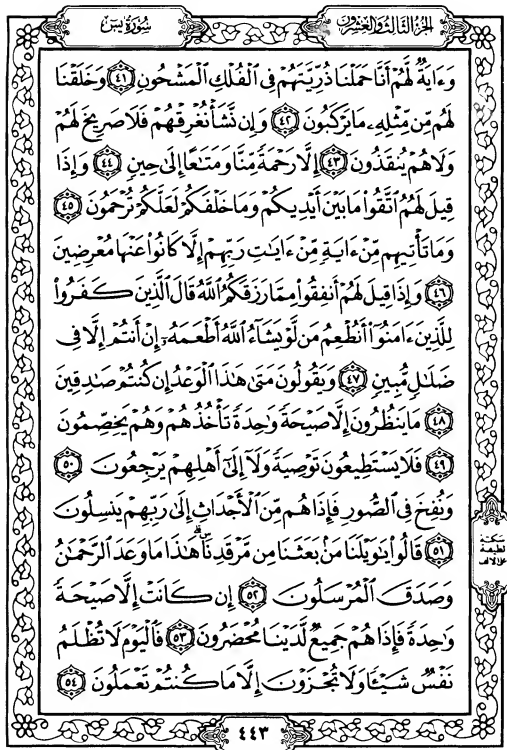 الجزء الثالث والعشرون
سورة يس
وَءَايَةٌ لَّهُمْ أَنَّا حَمَلْنَا ذُرِّيَّتَهُمْ فِي ٱلْفُلْكِ ٱلْمَشْحُونِ ٤١ وَخَلَقْنَا
لَهُم مِّن مِّثْلِهِۦ مَا يَرْكَبُونَ ٤٢ وَإِن نَّشَأْ نُغْرِقْهُمْ فَلَا صَرِيخَ لَهُمْ
وَلَا هُمْ يُنقَذُونَ ٤٣ إِلَّا رَحْمَةً مِّنَّا وَمَتَٰعًا إِلَىٰ حِينٍ ٤٤ وَإِذَا
قِيلَ لَهُمُ ٱتَّقُوا۟ مَا بَيْنَ أَيْدِيكُمْ وَمَا خَلْفَكُمْ لَعَلَّكُمْ تُرْحَمُونَ ٤٥
وَمَا تَأْتِيهِم مِّنْ ءَايَةٍ مِّنْ ءَايَٰتِ رَبِّهِمْ إِلَّا كَانُوا۟ عَنْهَا مُعْرِضِينَ
٤٦ وَإِذَا قِيلَ لَهُمْ أَنفِقُوا۟ مِمَّا رَزَقَكُمُ ٱللَّهُ قَالَ ٱلَّذِينَ كَفَرُوا۟
لِلَّذِينَ ءَامَنُوٓا۟ أَنُطْعِمُ مَن لَّوْ يَشَآءُ ٱللَّهُ أَطْعَمَهُۥٓ إِنْ أَنتُمْ إِلَّا فِي
ضَلَٰلٍ مُّبِينٍ ٤٧ وَيَقُولُونَ مَتَىٰ هَٰذَا ٱلْوَعْدُ إِن كُنتُمْ صَٰدِقِينَ
٤٨ مَا يَنظُرُونَ إِلَّا صَيْحَةً وَٰحِدَةً تَأْخُذُهُمْ وَهُمْ يَخِصِّمُونَ
٤٩ فَلَا يَسْتَطِيعُونَ تَوْصِيَةً وَلَآ إِلَىٰٓ أَهْلِهِمْ يَرْجِعُونَ ٥٠
وَنُفِخَ فِي ٱلصُّورِ فَإِذَا هُم مِّنَ ٱلْأَجْدَاثِ إِلَىٰ رَبِّهِمْ يَنسِلُونَ
٥١ قَالُوا۟ يَٰوَيْلَنَا مَنۢ بَعَثَنَا مِن مَّرْقَدِنَا ۜ هَٰذَا مَا وَعَدَ ٱلرَّحْمَٰنُ
وَصَدَقَ ٱلْمُرْسَلُونَ ٥٢ إِن كَانَتْ إِلَّا صَيْحَةً
وَٰحِدَةً فَإِذَا هُمْ جَمِيعٌ لَّدَيْنَا مُحْضَرُونَ ٥٣ فَٱلْيَوْمَ لَا تُظْلَمُ
نَفْسٌ شَيْـًٔا وَلَا تُجْزَوْنَ إِلَّا مَا كُنتُمْ تَعْمَلُونَ ٥٤
سكتة
لطيفة
على الألف
٤٤٣